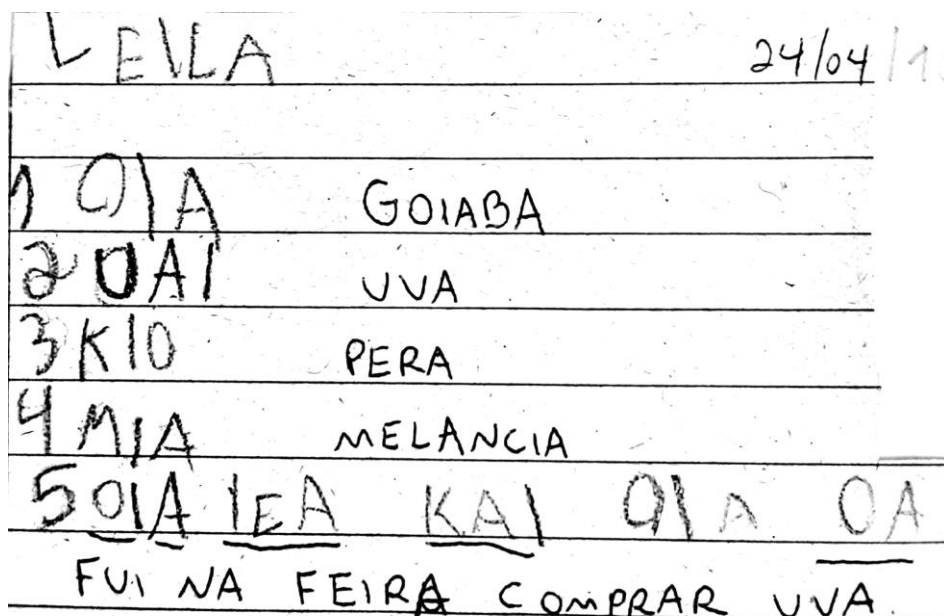 LEILA 24/04
1 OIA GOIABA
2 OAI UVA
3 KIO PERA
4 MIA MELANCIA
5 OIA IEA KAI OIA OA
FUI NA FEIRA COMPRAR UVA